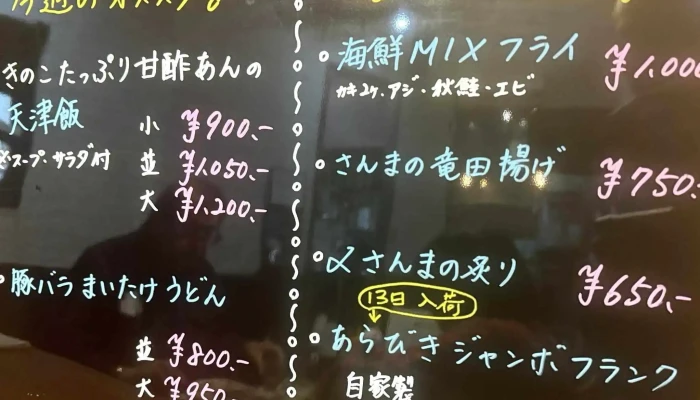 きのこたっぷり甘酢あんの
天津飯
小 ¥900.-
※スープ・サラダ付
並 ¥1,050.-
大 ¥1,200.-
豚バラまいたけうどん
並 ¥800.-
大 ¥950.-
海鮮MIXフライ ¥1,000
カキ2ケ・アジ・秋鮭・エビ
さんまの竜田揚げ ¥750.
〆さんまの炙り ¥650.-
13日入荷
あらびきジャンボフランク
自家製